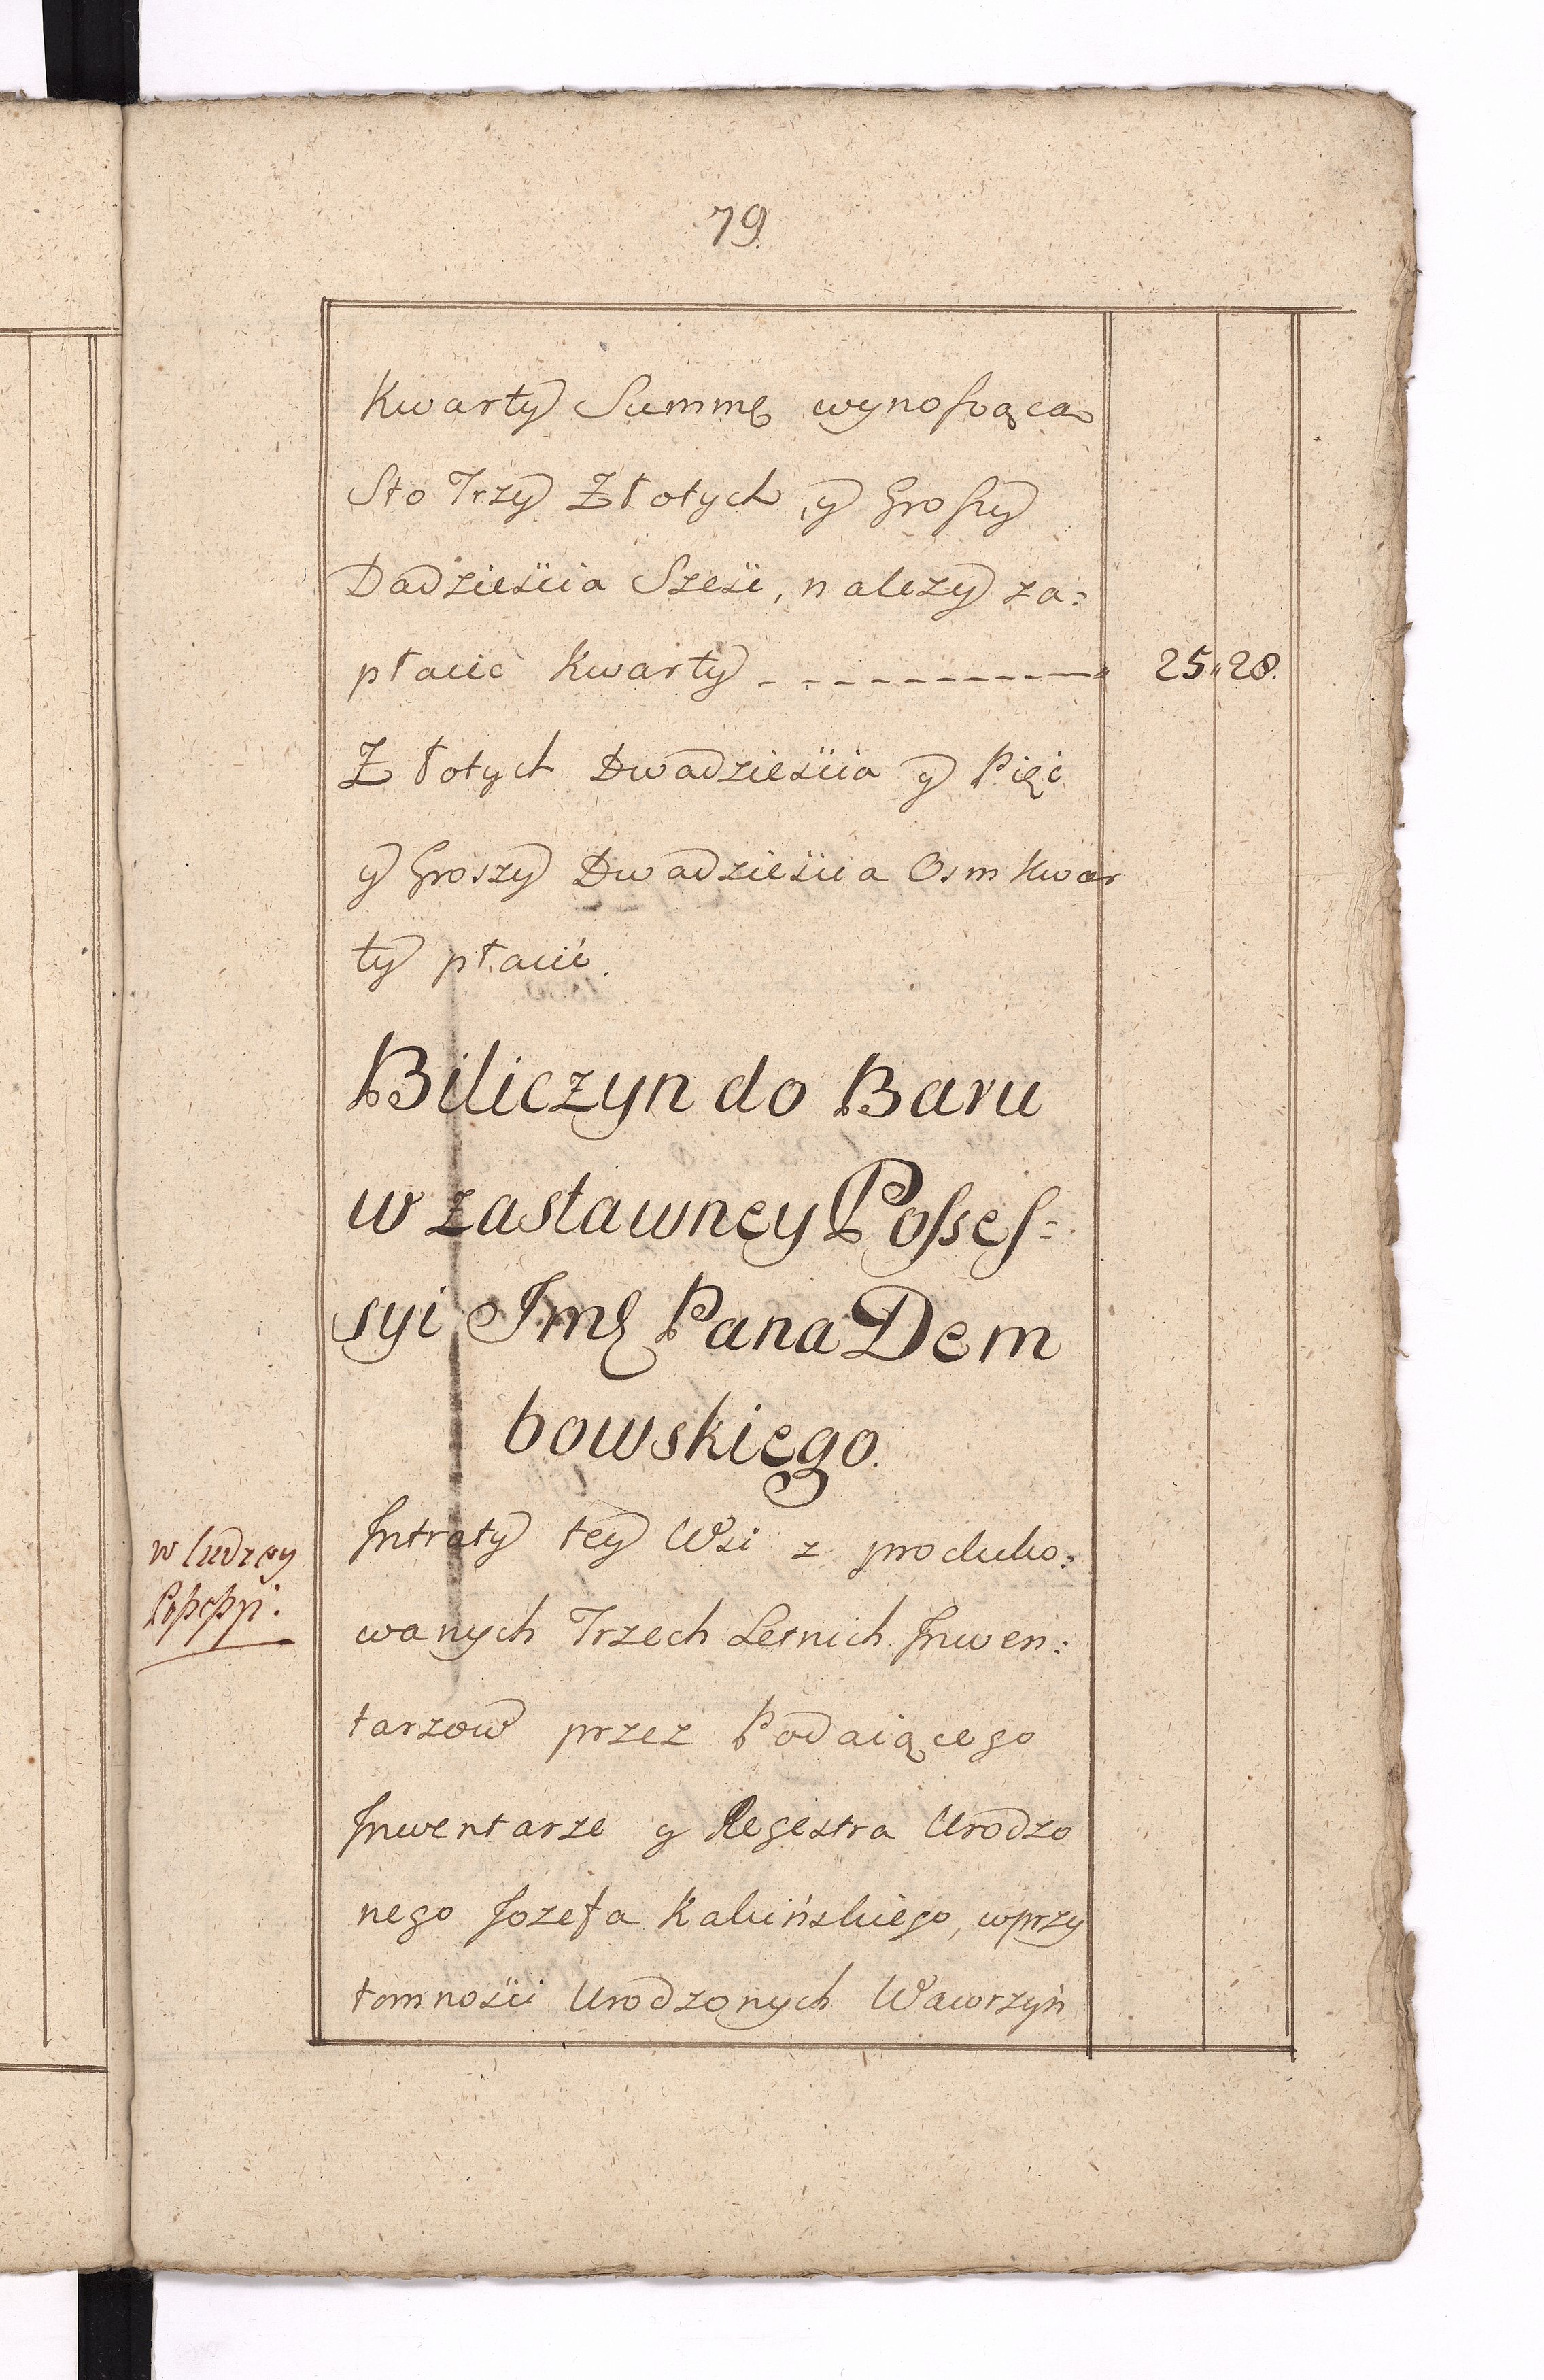 79
Kwarty Summę wynoſzącą
Sto Trzy Złotych, y Groſzy
Dadzieścia Sześć, nalezy za:
płacić Kwarty - - - - - - - - - - 25 „ 28.
Złotych Dwadzieścia y Pięć
y Groszy Dwadzieścia Osm Kwar
ty płacić.
Biliczyn do Baru
w zastawney Poſseſ=
syi Jmę Pana Dem
bowskiego.
Intraty tey Wsi z produko:
wanych Trzech Letnich Inwen:
tarzow przez Podaiącego
Inwentarze y Regestra Urodzo
nego Jozefa Kalińskiego, w przy
tomności Urodzonych Wawrzyń
w ludzey
Poſseſsyi.